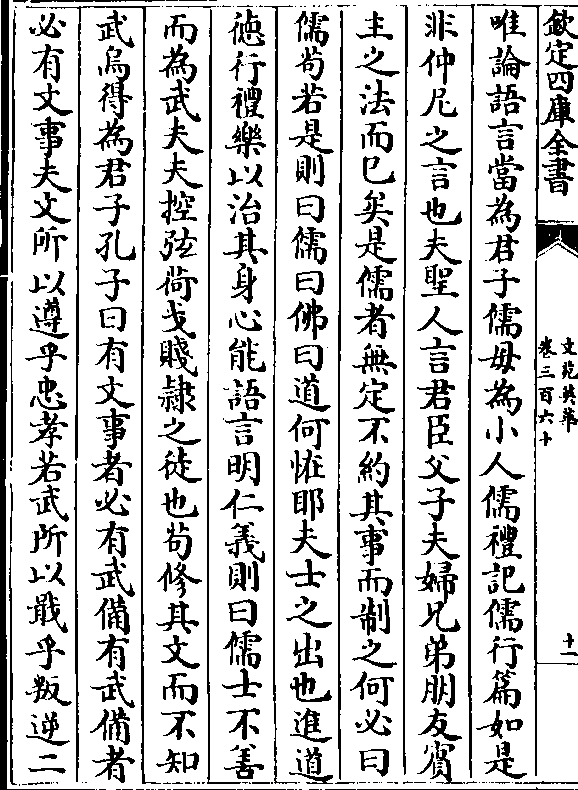 欽定四庫全書
文苑英華
卷三百六十
十一
唯論語言當為君子儒毋為小人儒禮記儒行篇如是
非仲尼之言也夫聖人言君臣父子夫婦兄弟朋友賓
主之法而已矣是儒者無定不約其事而制之何必曰
儒苟若是則曰儒曰佛曰道何恠耶夫士之出也進道
徳行禮樂以治其身心能語言明仁義則曰儒士不善
而為武夫夫控弦荷戈賤𨽻之徒也茍修其文而不知
武烏得為君子孔子曰有文事者必有武備有武備者
必有文事夫文所以遵乎忠孝若武所以戢乎叛逆二